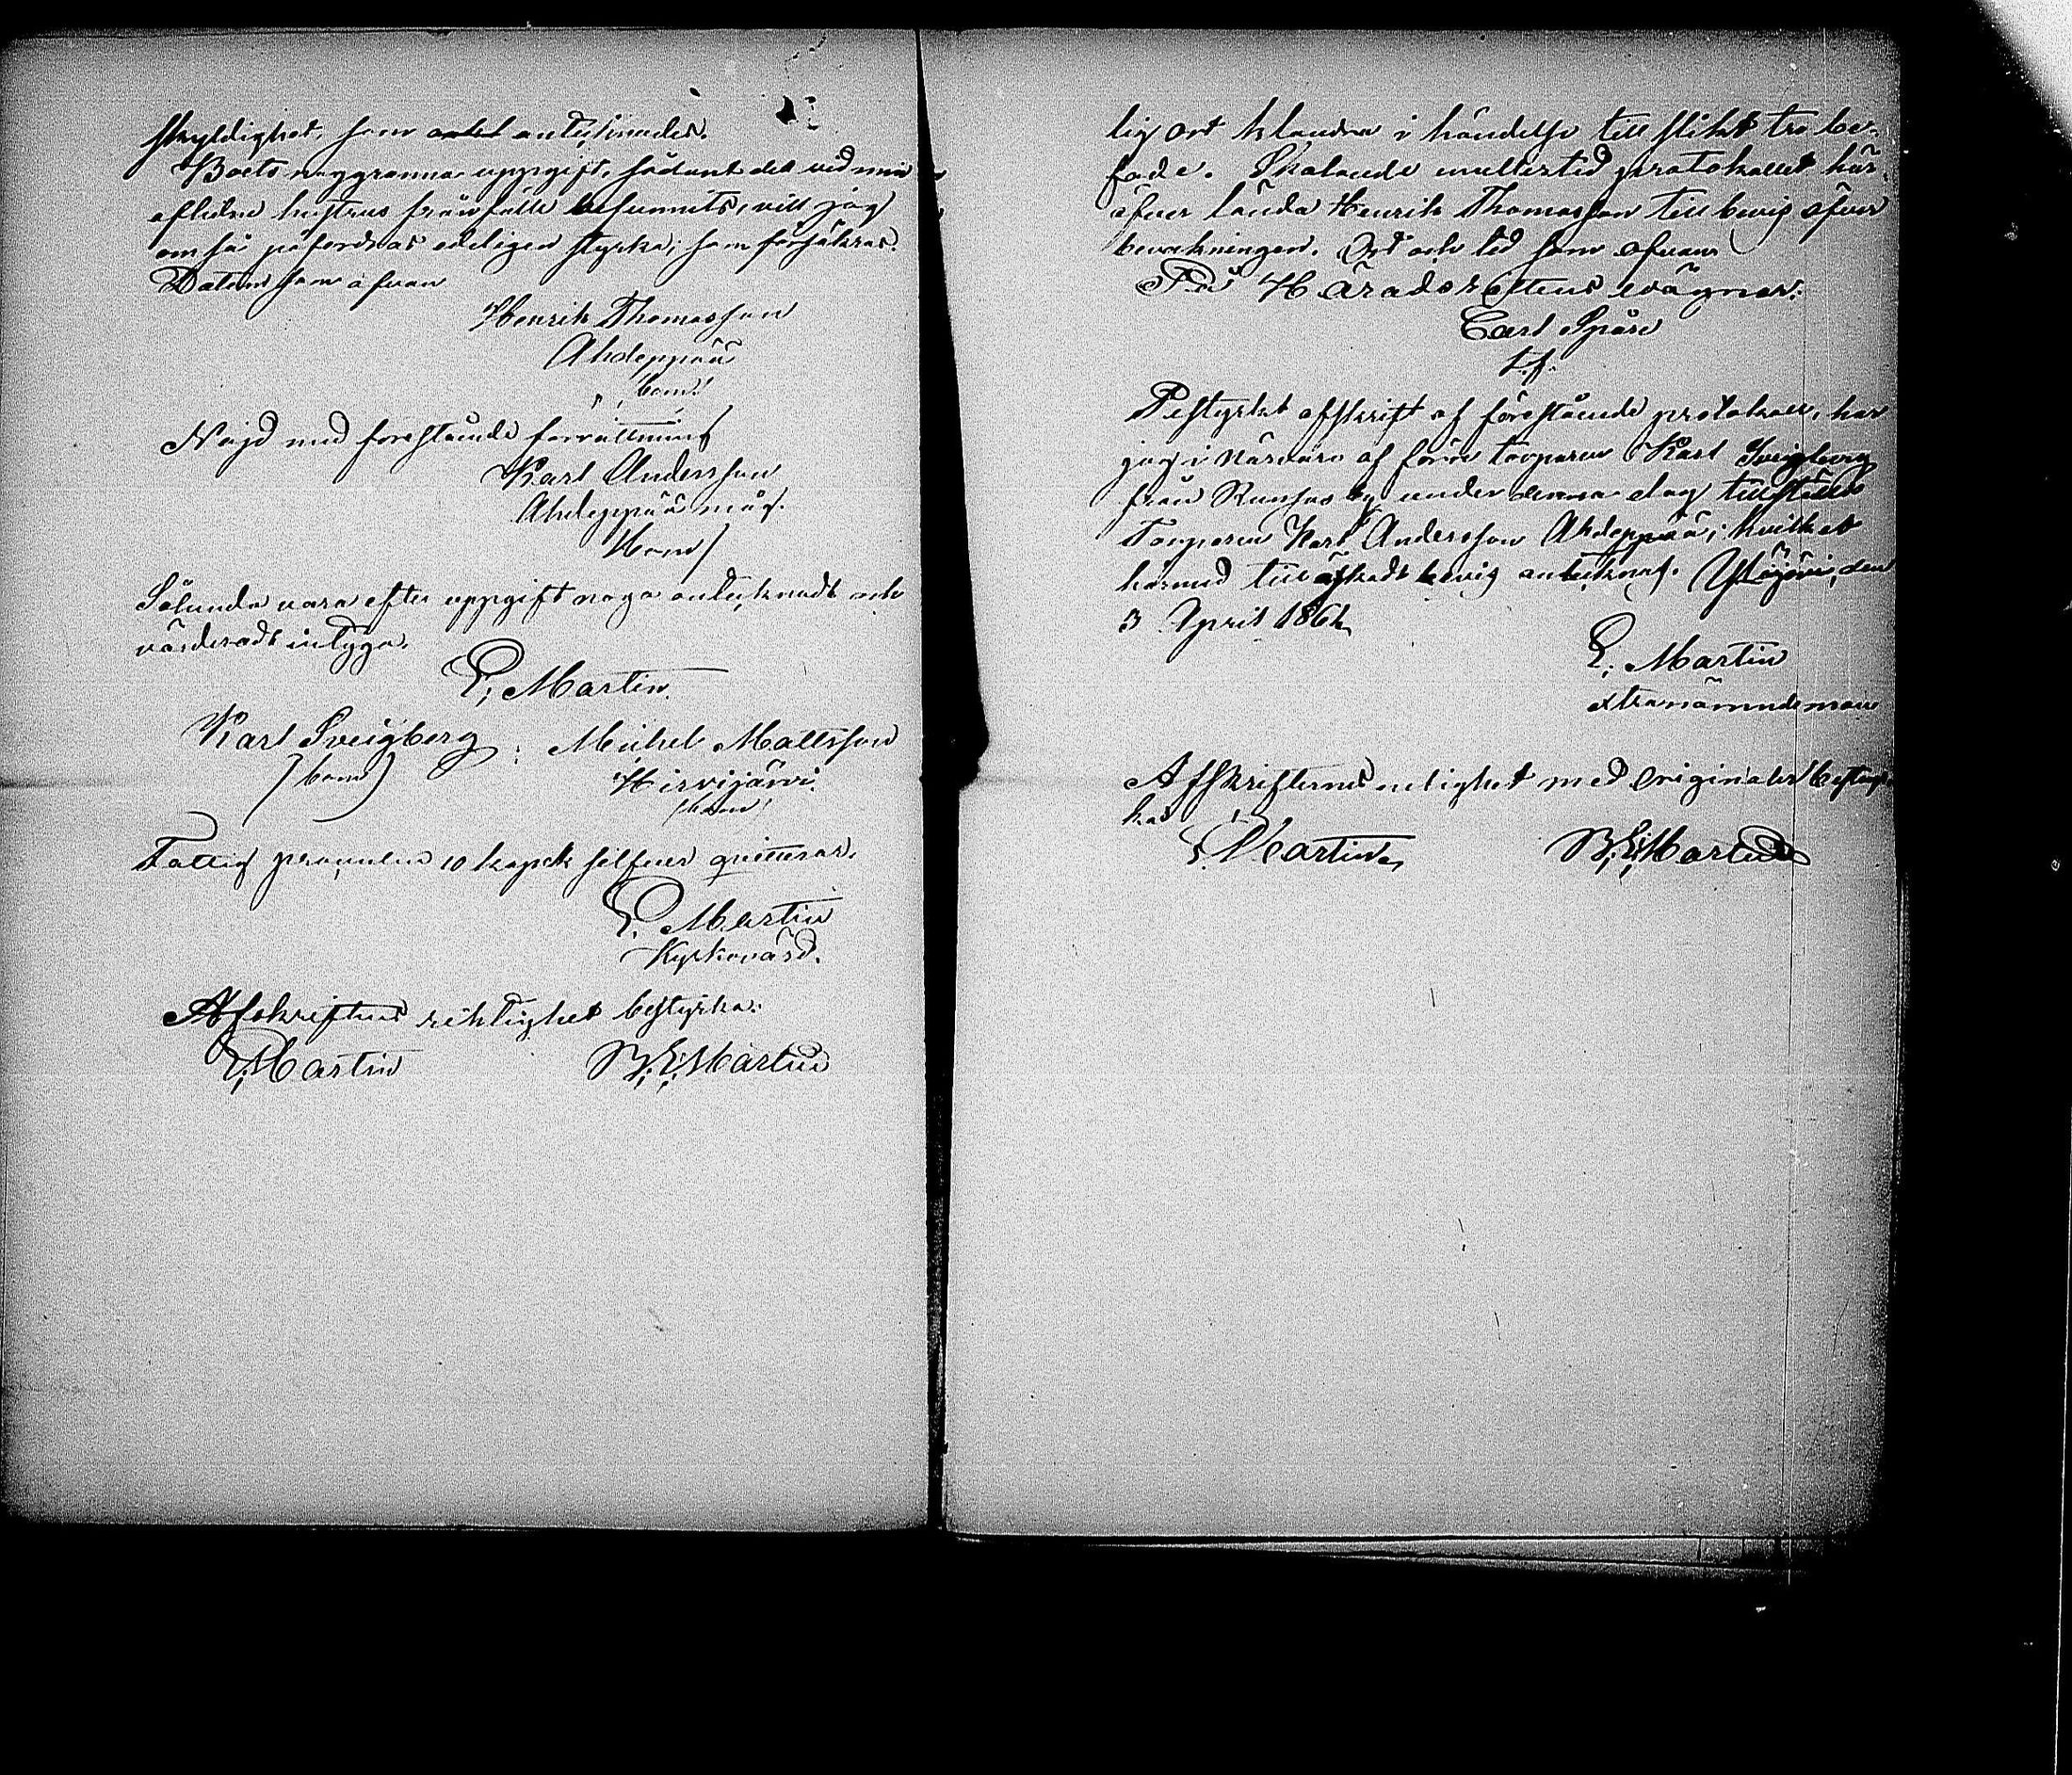 skyldighet, som antecknades.
Boets noggranna uppgift, sådant det vid min
aflidna hustrus frånfälle befunnits, vill jag
om så påfordras edeligen styrka; som försäkras.
Datum som ofvan
Henrik Thomasson
Ahdeppää
bom.
Nöjd med förestående förrättning
Karl Andersson
Ahdeppää måg.
bom/
Sålunda vara efter uppgift noga antecknadt och
värderadt intyga.
E. Martin.
Karl Sveigberg, Michel Mattsson
(bom) Hirvijärvi
(bom)
Fattig procenten 10 kopek silfver qvitteras.
E. Martin
Kyrkovärd.
Afskriftens riktighet bestyrka:
E. Martin B. E. Martin
lig ort klandra i händelse till slikt tro be-
fade. Skolande emellertid protokollet här-
öfver lända Henrik Thomasson till bevis öfver
bevakningen. Ort och tid som ofvan
På Häradsrättens vägnar:
Carl Spåre
t.f.
Bestyrkt afskrift af förestående protokoll, har
jag i närvaro af förre torparen Karl Sveigberg
från Runsas by under denna dag tillstält
Torparen Karl Andersson Ahdeppää; hvilket
härmed till äskadt bevis antecknas. Ylöjärvi, den
3 April 1862
E. Martin
extranämndeman
Afskrifternes enlighet med Originalen bestyr-
ka
E. Martin B. E. Martin